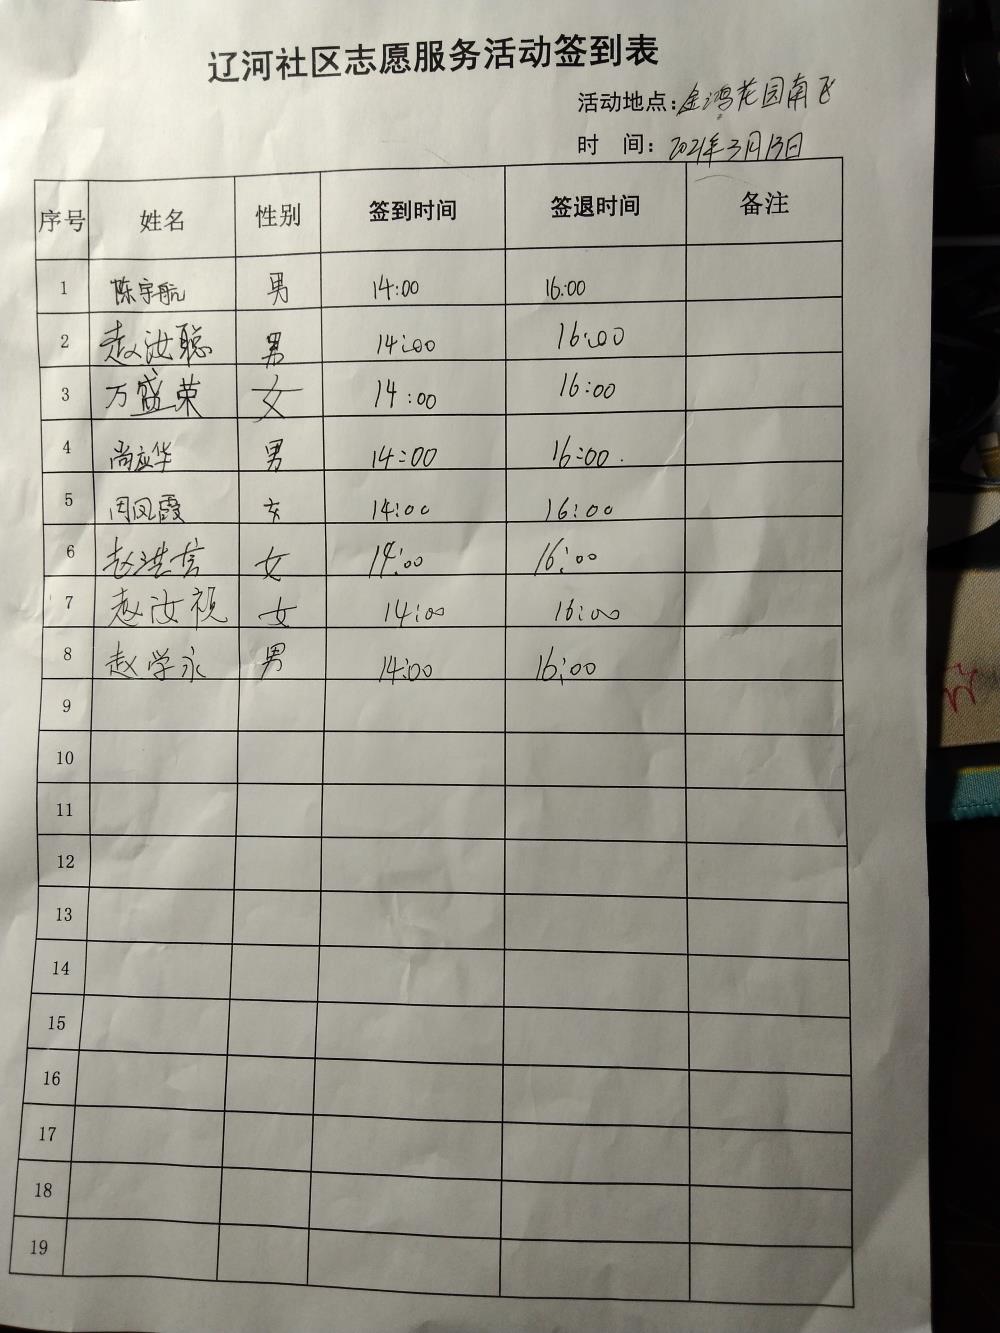 辽河社区志愿服务活动签到表
活动地点:金鸿花园南
时 间:2021年3月13日
序号 姓名 性别 签到时间 签退时间 备注
1 陈宇航 男 14:00 16:00
2 赵汝聪 男 14:00 16:00
3 万盛荣 女 14:00 16:00
4 尚应华 男 14:00 16:00
5 闫凤霞 女 14:00 16:00
6 赵洪言 女 14:00 16:00
7 赵汝视 女 14:00 16:00
8 赵学永 男 14:00 16:00
9
10
11
12
13
14
15
16
17
18
19